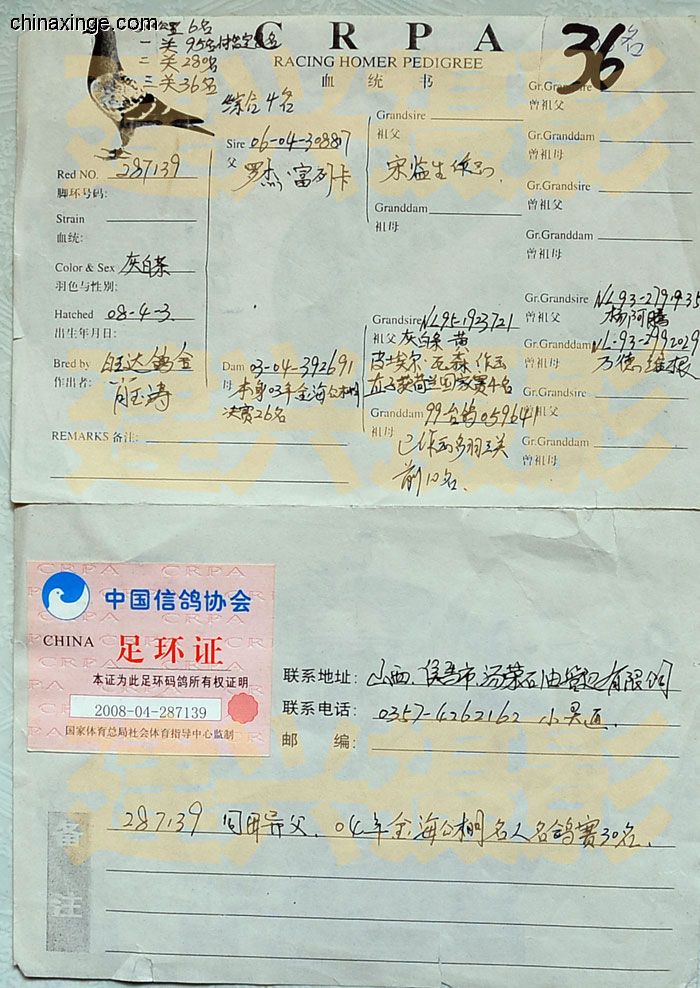 chinaxinge.com
6名
一关 95名
二关 280名
三关 36名
综合4名
C R P A
36名
RACING HOMER PEDIGREE
血 统 书
Red NO. 287139
脚环号码:
Strain
血统:
Color & Sex 灰白条
羽色与性别:
Hatched 08-4-3.
出生年月日:
Bred by 旺达鸽舍
作出者:
REMARKS 备注:
Sire 06-04-308807
父 罗杰·富列卡
Dam 03-04-392691
母 本身03年金海公棚
决赛26名
Grandsire
祖父
Granddam
祖母
Grandsire NL95-1923721
祖父 灰白条 黄
皮埃尔·瓦森作出
Granddam 99-台鸽059641
祖母
已作出多羽三关
前10名.
Gr.Grandsire
曾祖父
Gr.Granddam
曾祖母
Gr.Grandsire
曾祖父
Gr.Granddam
曾祖母
Gr.Grandsire NL93-2791935
曾祖父 杨阿腾
Gr.Granddam NL-93-2992029
曾祖母 万德维根
Gr.Grandsire
曾祖父
Gr.Granddam
曾祖母
CRPA
中国信鸽协会
CHINA 足环证
本证为此足环码鸽所有权证明
2008-04-287139
国家体育总局社会体育指导中心监制
联系地址: 山西.侯马市.汤荣石油管理有限公司
联系电话: 0357-4262162
邮 编:
备注
287139 同母异父. 04年金海公棚名人名鸽赛30名.